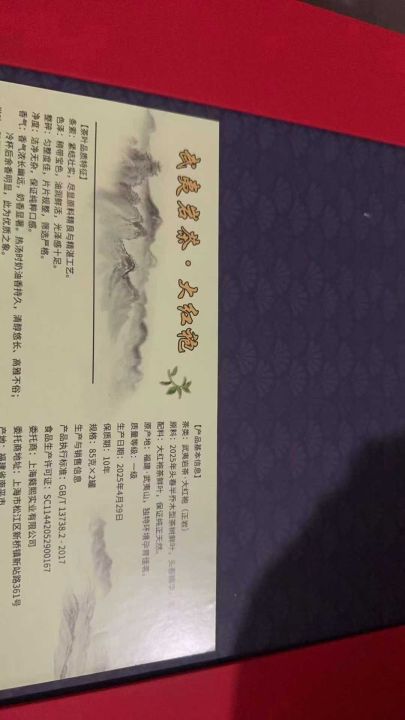 武夷岩茶·大红袍
【茶叶品质特征】
条索：紧结壮实，尽显原料精良与精湛工艺。
色泽：稍带宝色，油润鲜活，光泽感十足。
整碎：匀整度佳，片片规整，筛选严格。
净度：洁净无杂，保证纯粹口感。
香气：香气浓长幽远，奶香显著，热汤时奶油香持久，清醇悠长，高雅不俗；
冷杯后余香明显，此为优质之象。
【产品基本信息】
茶类：武夷岩茶·大红袍（正岩）
原料：2025年头春半乔木型茶树鲜叶，头春精华
配料：大红袍茶鲜叶，保证纯正天然。
原产地：福建·武夷山，独特环境孕育佳茗。
质量等级：一级
生产日期：2025年4月29日
保质期：10年
规格：85克×2罐
生产与销售信息
产品执行标准：GB/T 13738.2 - 2017
食品生产许可证：SC11442052900167
委托商：上海 熙实业有限公司
委托商地址：上海市松江区新桥镇新站路361号
产地：福建省南平市